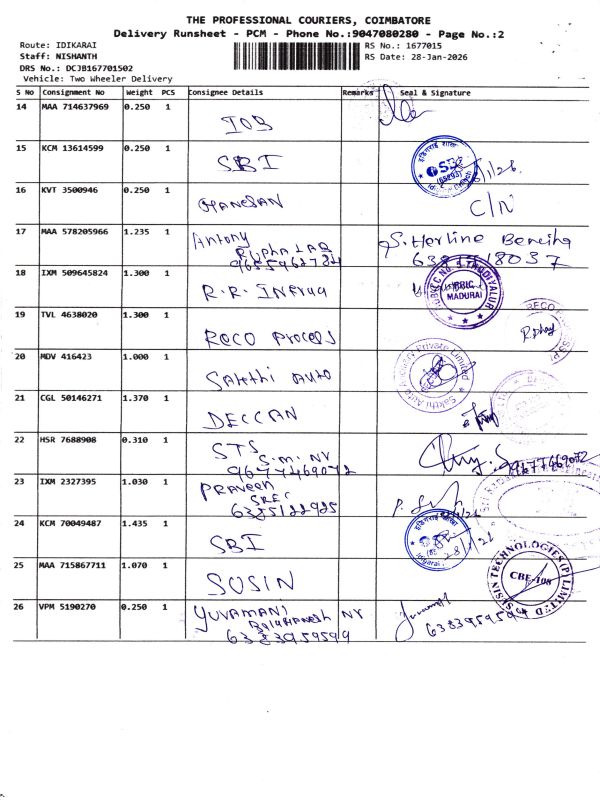 THE PROFESSIONAL COURIERS, COIMBATORE
Delivery Runsheet - PCM - Phone No.:9047080280 - Page No.:2
Route: IDIKARAI
RS No.: 1677015
Staff: NISHANTH
RS Date: 28-Jan-2026
DRS No.: DCJB167701502
Vehicle: Two Wheeler Delivery
S No Consignment No Weight PCS Consignee Details Remarks Seal & Signature
14 MAA 714637969 0.250 1
IOB
15 KCM 13614599 0.250 1
SBI
16 KVT 3500946 0.250 1
GHANESAN
C/N
17 MAA 578205966 1.235 1
Antony
S. Herline
18 IXM 509645824 1.300 1
R.R.
BBIC
MADURAI
19 TVL 4638020 1.300 1
ROCO Process
20 MDV 416423 1.000 1
Sakthi Auto
Sakthi Auto Private Limited
21 CGL 50146271 1.370 1
DECCAN
22 HSR 7688908 0.310 1
STS
S.M. NY
9677469072
9677469072
23 IXM 2327395 1.030 1
PRAVEEN
SREC
6385122925
24 KCM 70049487 1.435 1
SBI
28/1/26
25 MAA 715867711 1.070 1
SUSIN
SUSIN TECHNOLOGIES (P) LIMITED
CBE-108
26 VPM 5190270 0.250 1
YUVAMANI NY
6383959599